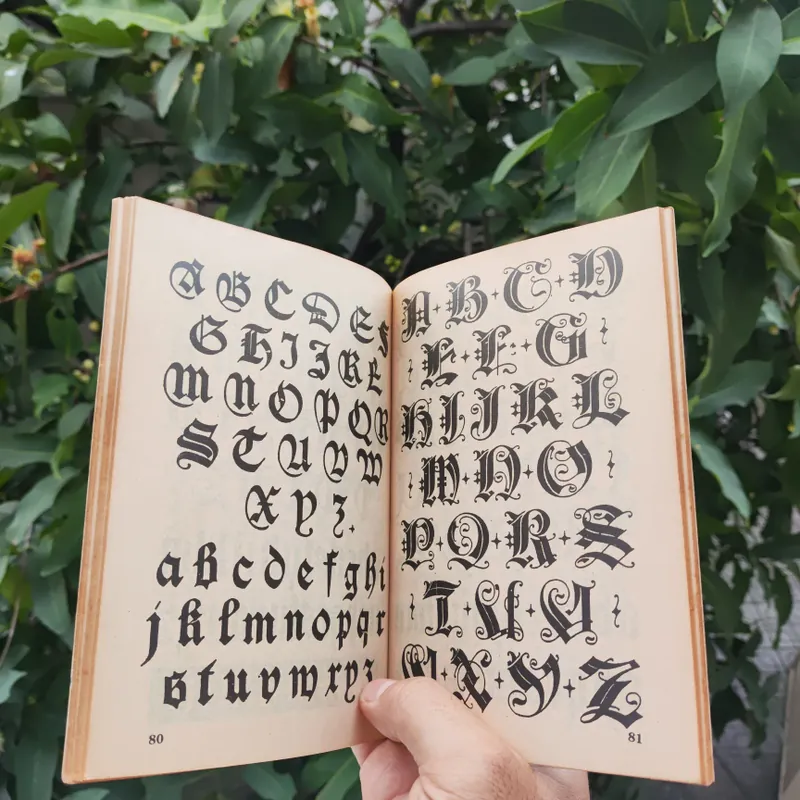 A B C D E F
G H I J K L
M N O P Q R
S T U V W
X Y Z.
a b c d e f g h i
j k l m n o p q r
s t u v w x y z
80
A B C D
E F G
H I J K L
M N O
P Q R S
T U V
W X Y Z
81